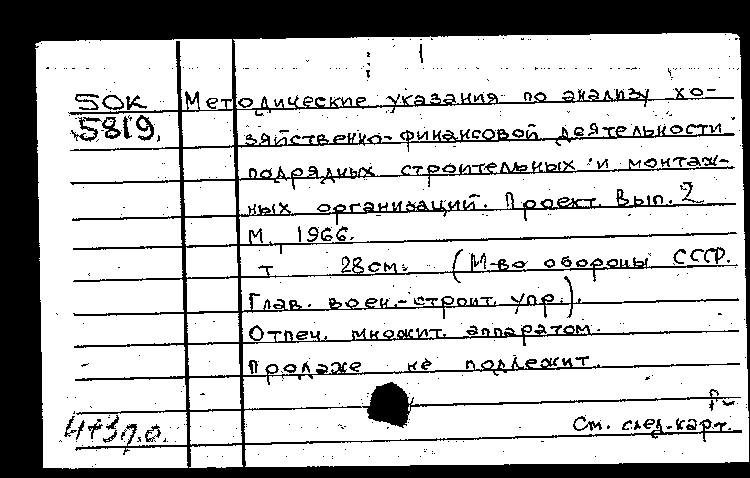 50к Методические указания по анализу хо-
5819. зяйственно-финансовой деятельности
подрядных строительных и монтаж-
ных организаций. Проект. Вып. 2
М., 1966.
т 28см. (М-во обороны СССР.
Глав. воен.-строит. упр.).
Отпеч. множит. аппаратом.
Продаже не подлежит.
См. след. карт.